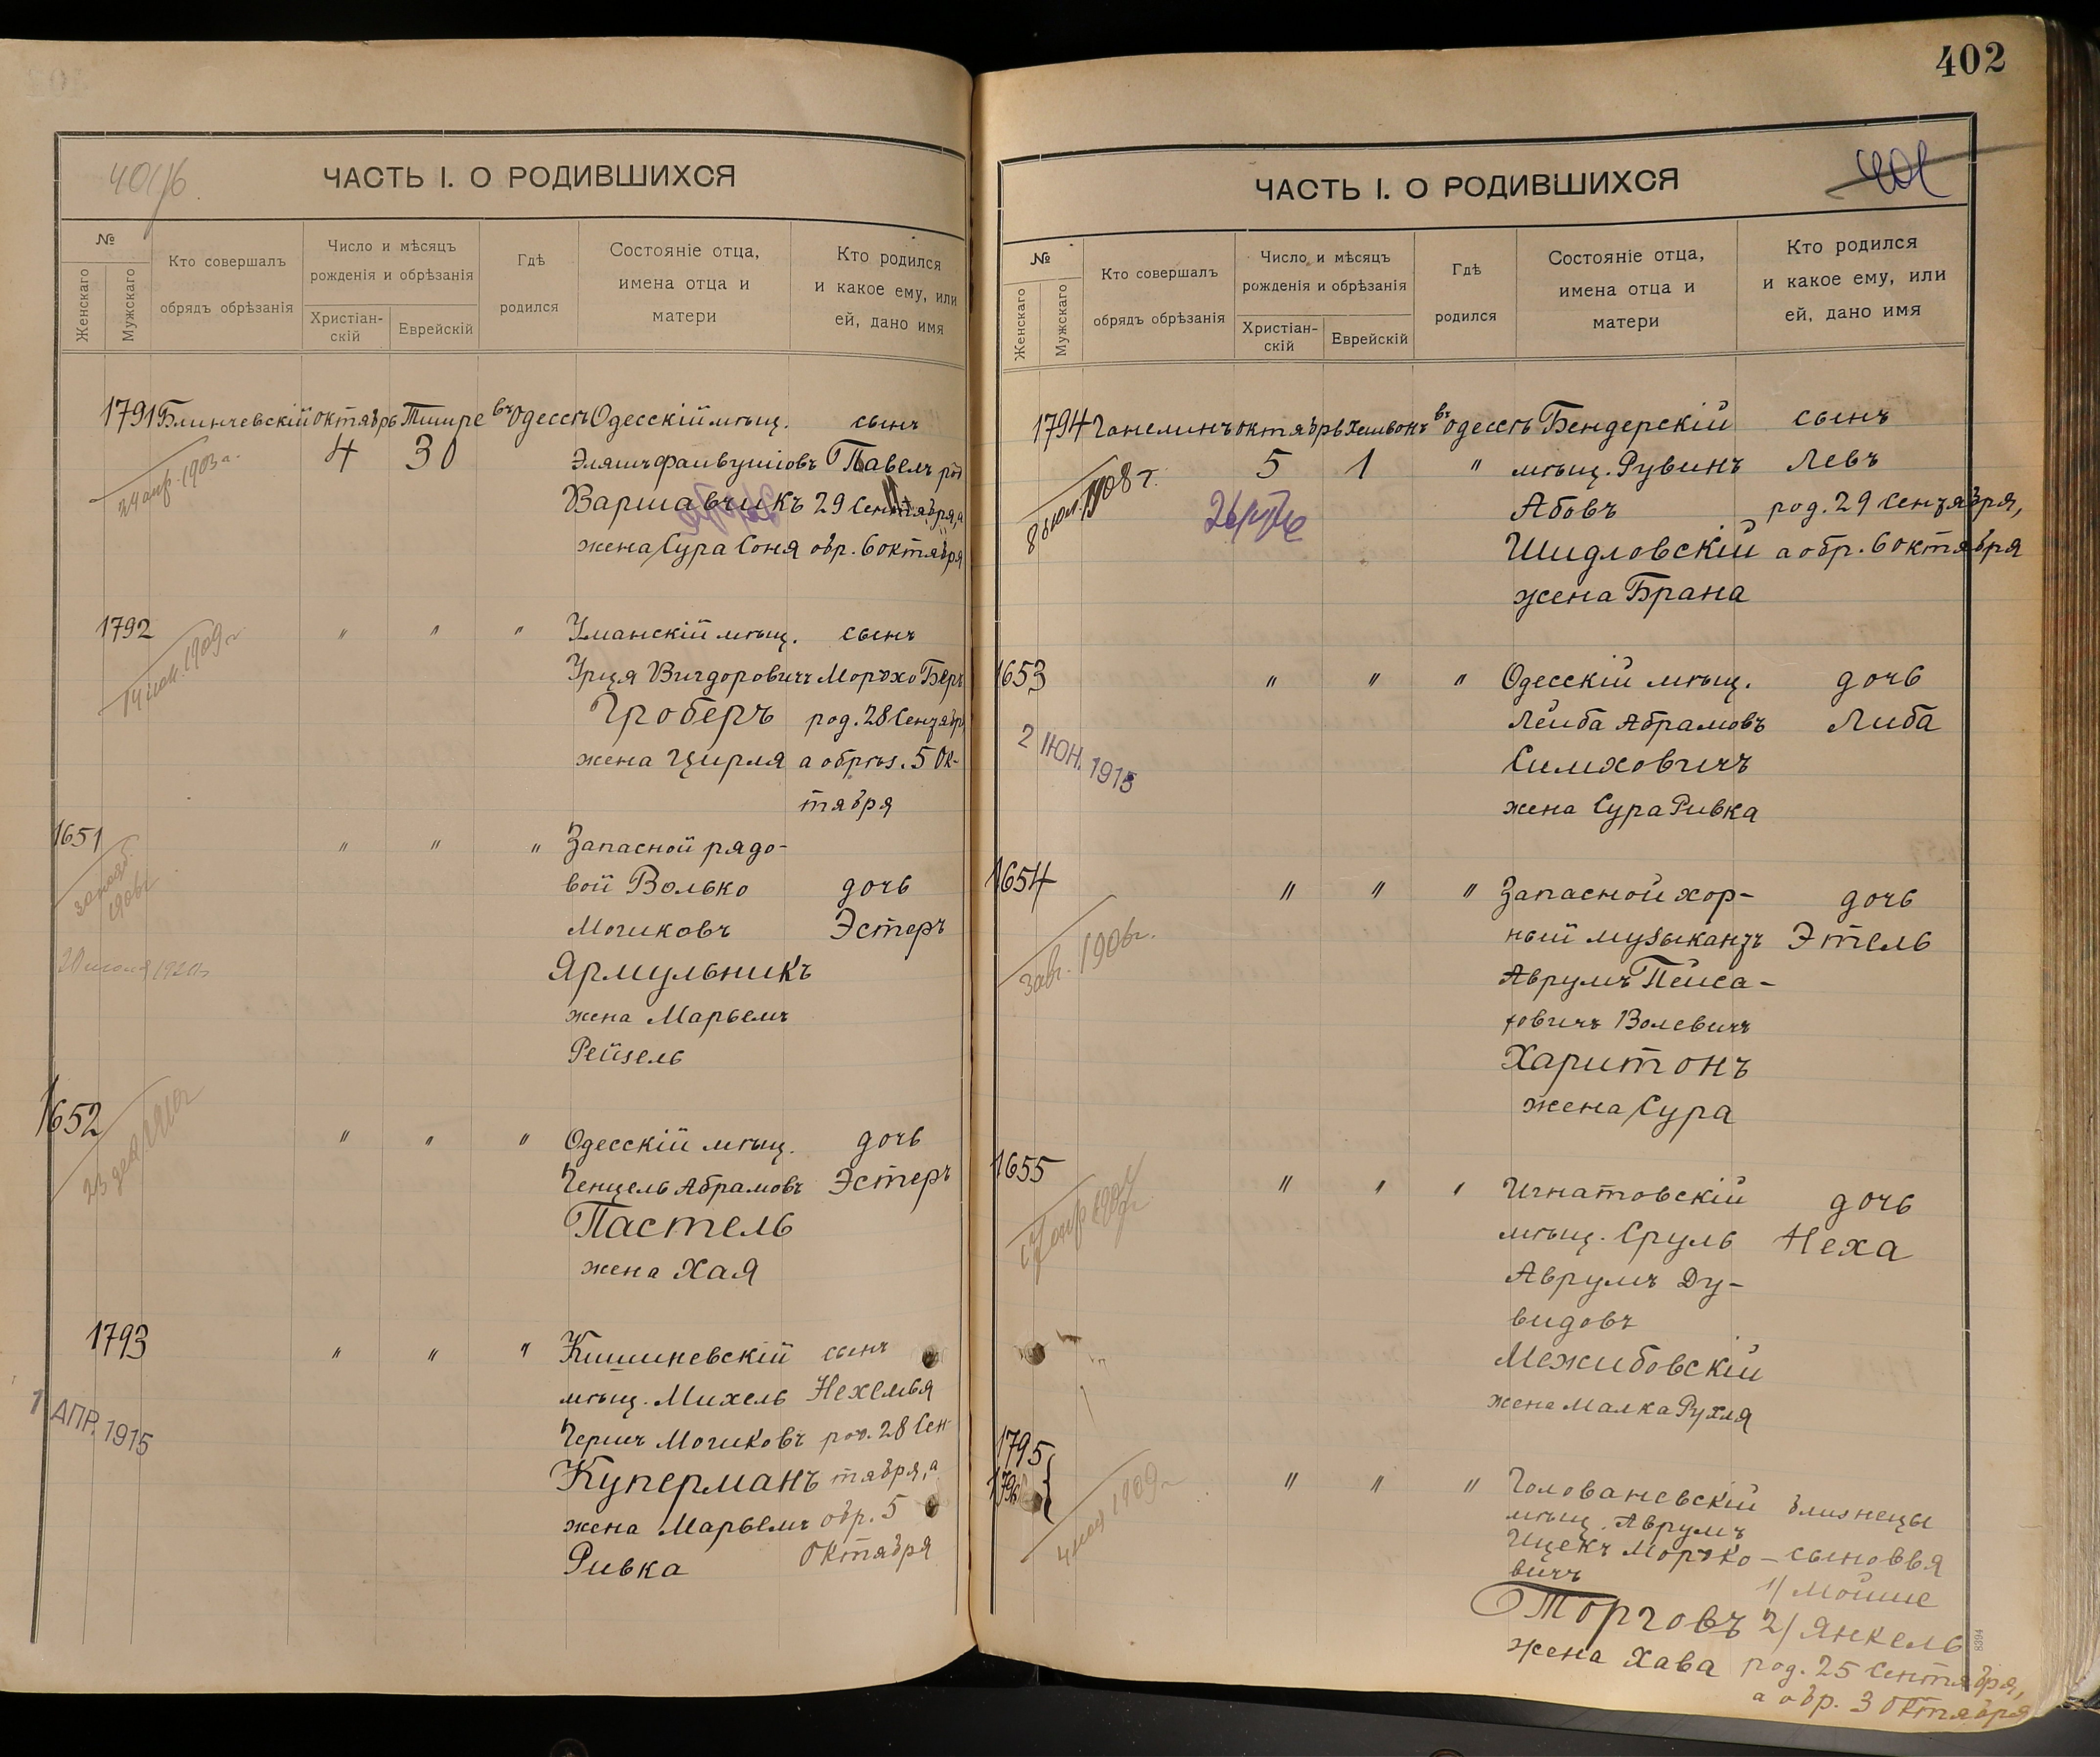 402
401/б
ЧАСТЬ I. О РОДИВШИХСЯ
№
Женскаго
Мужскаго
Кто совершалъ
обрядъ обрѣзанія
Число и мѣсяцъ
рожденія и обрѣзанія
Христіан-
скій
Еврейскій
Гдѣ
родился
Состояніе отца,
имена отца и
матери
Кто родился
и какое ему, или
ей, дано имя
1791 Блинчевскій октябрь Тишре въ Одессѣ Одесскій мѣщ. сынъ
24 апр. 1903 г.
4 30
Эляшъ Файвушовъ Павелъ род
Варшавчикъ 29 Сентября, а
жена Сура Соня обр. 6 октября
1792 " " " Уманскій мѣщ. сынъ
1909 г.
Урця Вигдоровичъ Мордхо Беръ
Гроберъ род. 28 Сентябр
жена Цирля а обрѣз. 5 Ок-
тября
1651 " " " Запасной рядо-
1906 г.
вой Волько дочь
Мошковъ Эстеръ
20 июля 1920 г.
Ярмульникъ
жена Марьемъ
Рейзель
1652 " " " Одесскій мѣщ. дочь
23 дек. 1910 г.
Генцель Абрамовъ Эстеръ
Пастель
жена Хая
1793 " " " Кишиневскій сынъ
мѣщ. Михель Нехемья
1 АПР. 1915
Гершъ Мошковъ род. 28 Сен-
Куперманъ тября, а
жена Марьемъ обр. 5
Ривка Октября
ЧАСТЬ I. О РОДИВШИХСЯ
401
№
Женскаго
Мужскаго
Кто совершалъ
обрядъ обрѣзанія
Число и мѣсяцъ
рожденія и обрѣзанія
Христіан-
скій
Еврейскій
Гдѣ
родился
Состояніе отца,
имена отца и
матери
Кто родился
и какое ему, или
ей, дано имя
1794 Ганелинъ октябрь Хешвонъ въ Одессѣ Бендерскій сынъ
1908 г.
5 1 " мѣщ. Рувинъ Левъ
Абовъ род. 29 Сентября,
Шидловскій а обр. 6 октября
жена Брана
1653 " " " Одесскій мѣщ. дочь
Лейба Абрамовъ Либа
2 ІЮН. 1915
Симховичъ
жена Сура Ривка
1654 " " " Запасной хор-
дочь
ный музыкантъ Этель
3 авг. 1906 г.
Аврумъ Пейса-
ховичъ Волевичъ
Харитонъ
жена Сура
1655 " " " Игнатовскій дочь
мѣщ. Сруль Неха
Аврумъ Ду-
видовъ
Межибовскій
жена Малка Рухля
1795
1796 " " " Голованевскій близнецы
4 мая 1909 г.
мѣщ. Аврумъ
Ицекъ Мордко- сыновья
вичъ 1/ Мойше
Торговъ 2/ Янкель
жена Хава род. 25 Сентября,
а обр. 3 Октября
8394